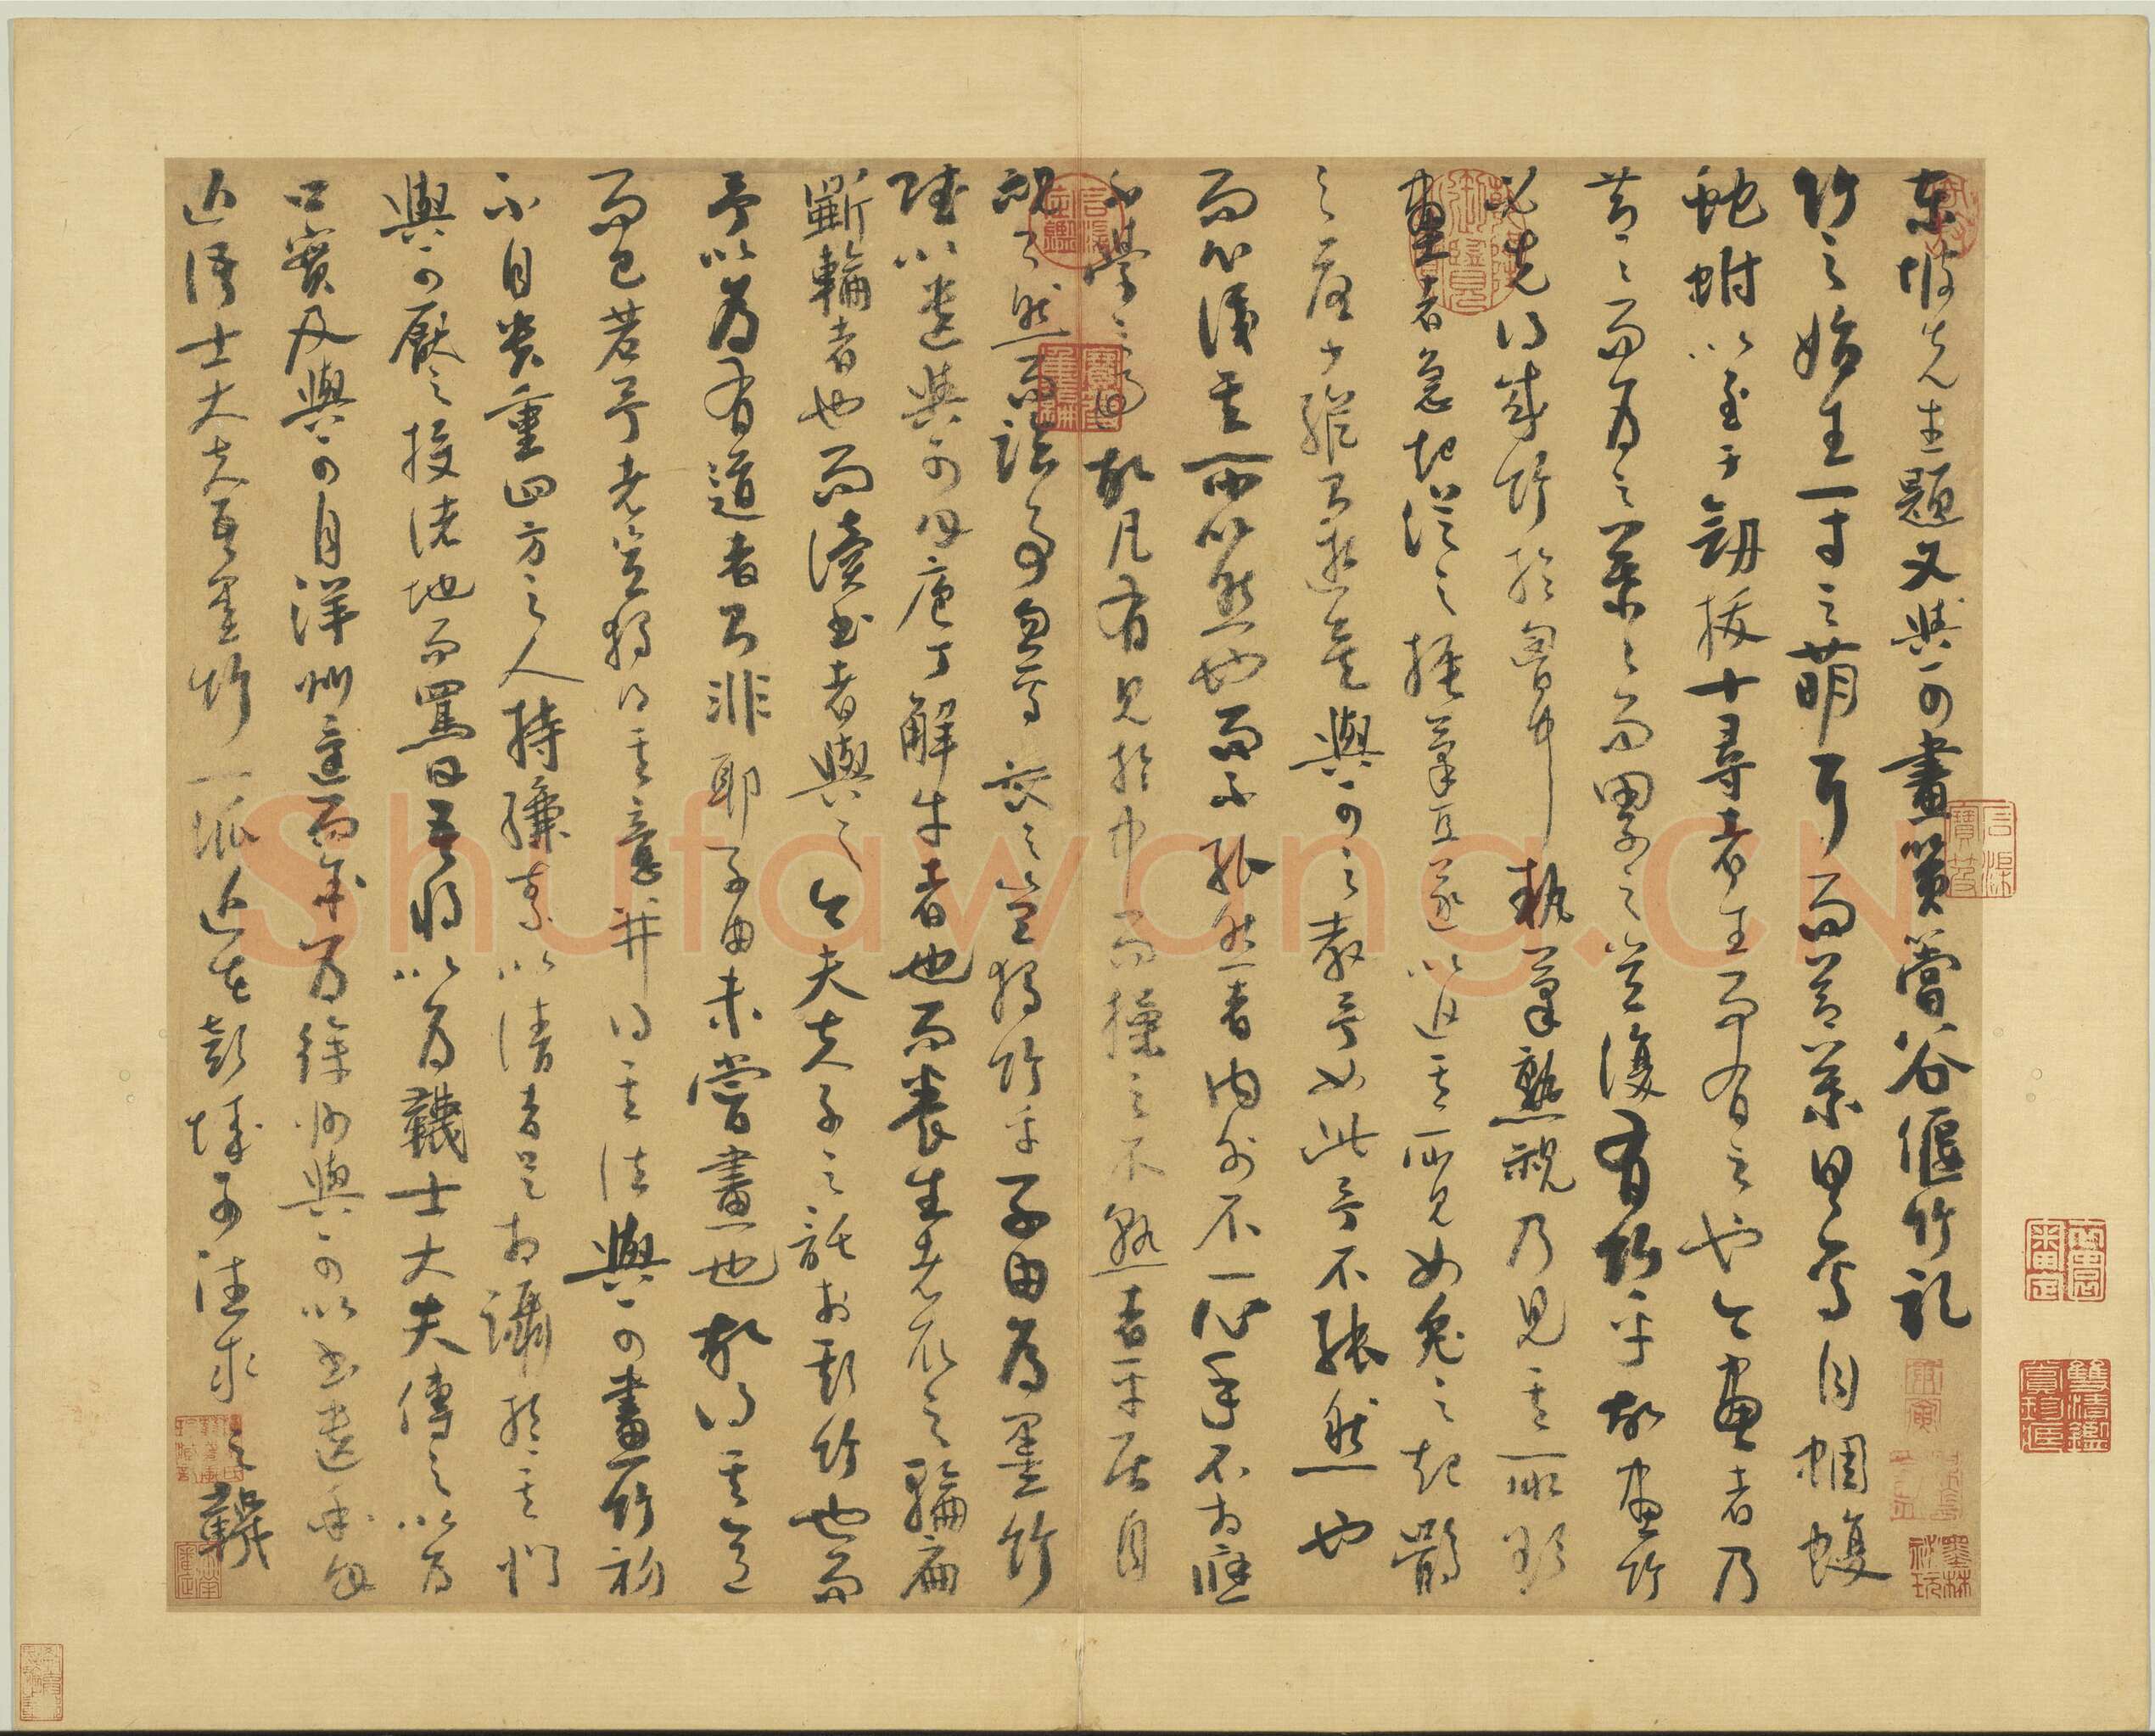 東坡先生題文與可畫篔簹谷偃竹記
竹之始生一寸之萌耳而節葉具焉自蜩蝮
蛇蚹以至于劍拔十尋者生而有之也今畫者乃
節節而為之葉葉而累之豈復有竹乎故畫竹
必先得成竹於胷中執筆熟視乃見其所欲
畫者急起從之振筆直遂以追其所見如兔之起鶻
之落少縱則逝矣與可之教予如此予不能然也
而心識其所以然也而不能然者內外不一心手不相應
不學之過也故凡有見於中而操之不熟者平居自
視了然而臨事忽焉喪之豈獨竹乎子由為墨竹
賦以遺與可曰庖丁解牛者也而養生者取之輪扁
斲輪者也而讀書者與之今夫夫子之託於斯竹也而
予以為有道者則非耶子由未嘗畫也故得其意
而已若予者豈獨得其意并得其法與可畫竹初
不自貴重四方之人持縑素以請者足相躡於其門
與可厭之投諸地而罵曰吾將以為韈士大夫傳之以為
口實及與可自洋州還而余為徐州與可以書遺余曰
近語士大夫吾墨竹一派近在彭城可往求之韈
Shufawang.CN